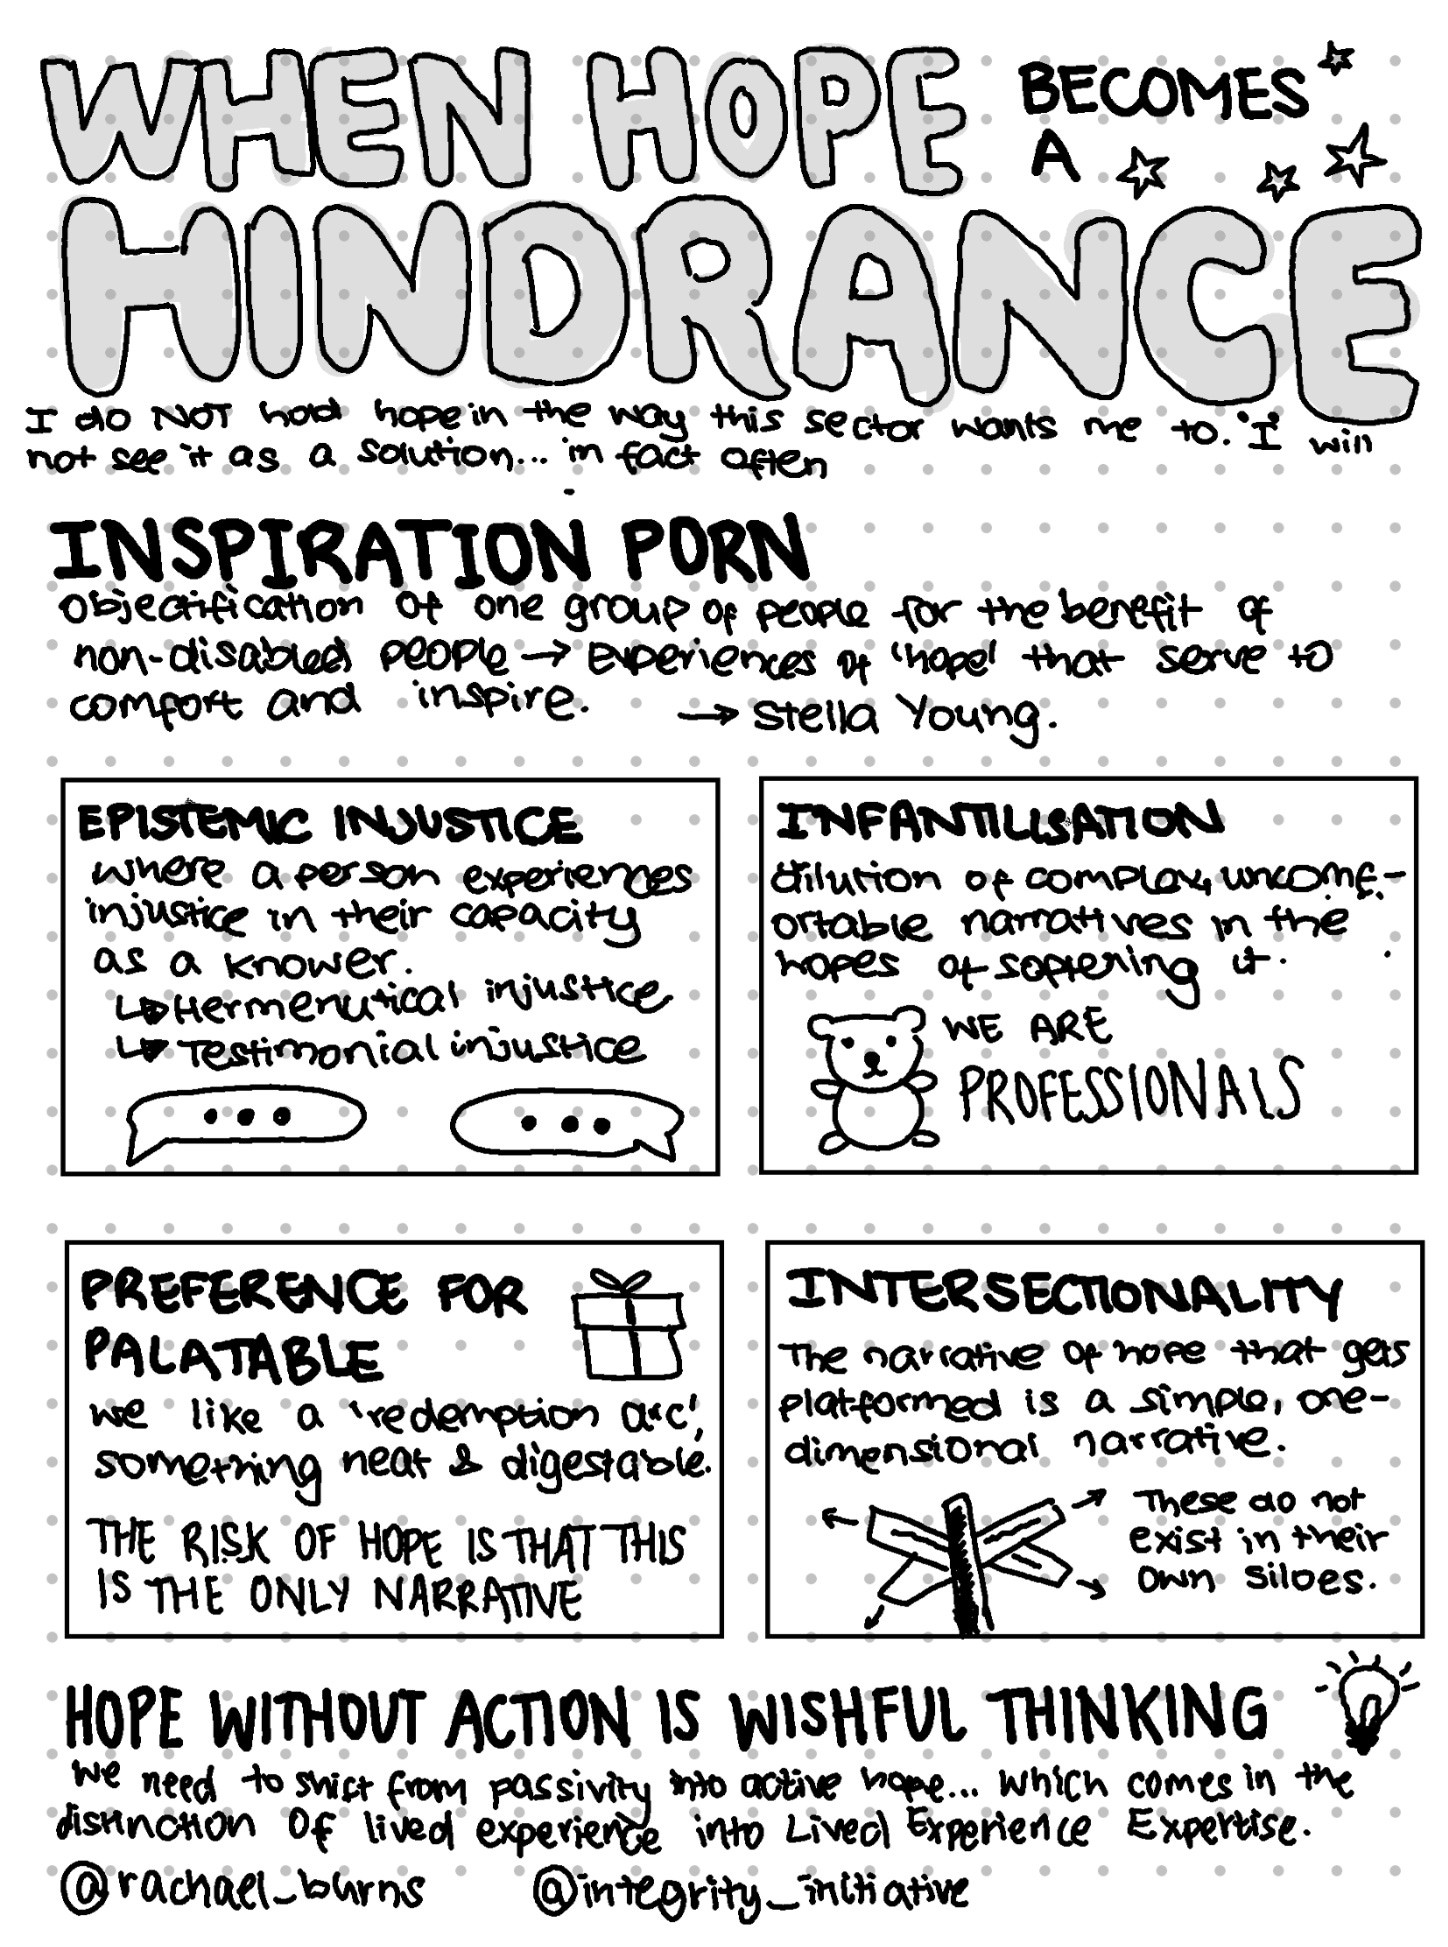 WHEN HOPE BECOMES
A
HINDRANCE
I do NOT hold hope in the way this sector wants me to. I will
not see it as a solution... in fact often
INSPIRATION PORN
Objectification of one group of people for the benefit of
non-disabled people → Experiences of 'hope' that serve to
comfort and inspire. → Stella Young.
EPISTEMIC INJUSTICE
where a person experiences
injustice in their capacity
as a knower.
↳ Hermenutical injustice
↳ Testimonial injustice
INFANTILISATION
dilution of complex, uncomf-
ortable narratives in the
hopes of softening it.
WE ARE
PROFESSIONALS
PREFERENCE FOR
PALATABLE
we like a 'redemption arc',
something neat & digestable.
THE RISK OF HOPE IS THAT THIS
IS THE ONLY NARRATIVE
INTERSECTIONALITY
The narrative of hope that gets
platformed is a simple, one-
dimensional narrative.
These do not
exist in their
own siloes.
HOPE WITHOUT ACTION IS WISHFUL THINKING
We need to shift from passivity into active hope... which comes in the
distinction of lived experience into Lived Experience Expertise.
@rachael_burns @integrity_initiative